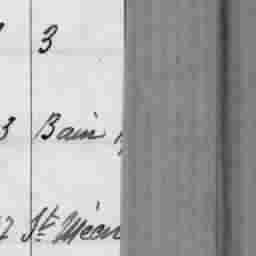 3
3 Bain
7 St Méen